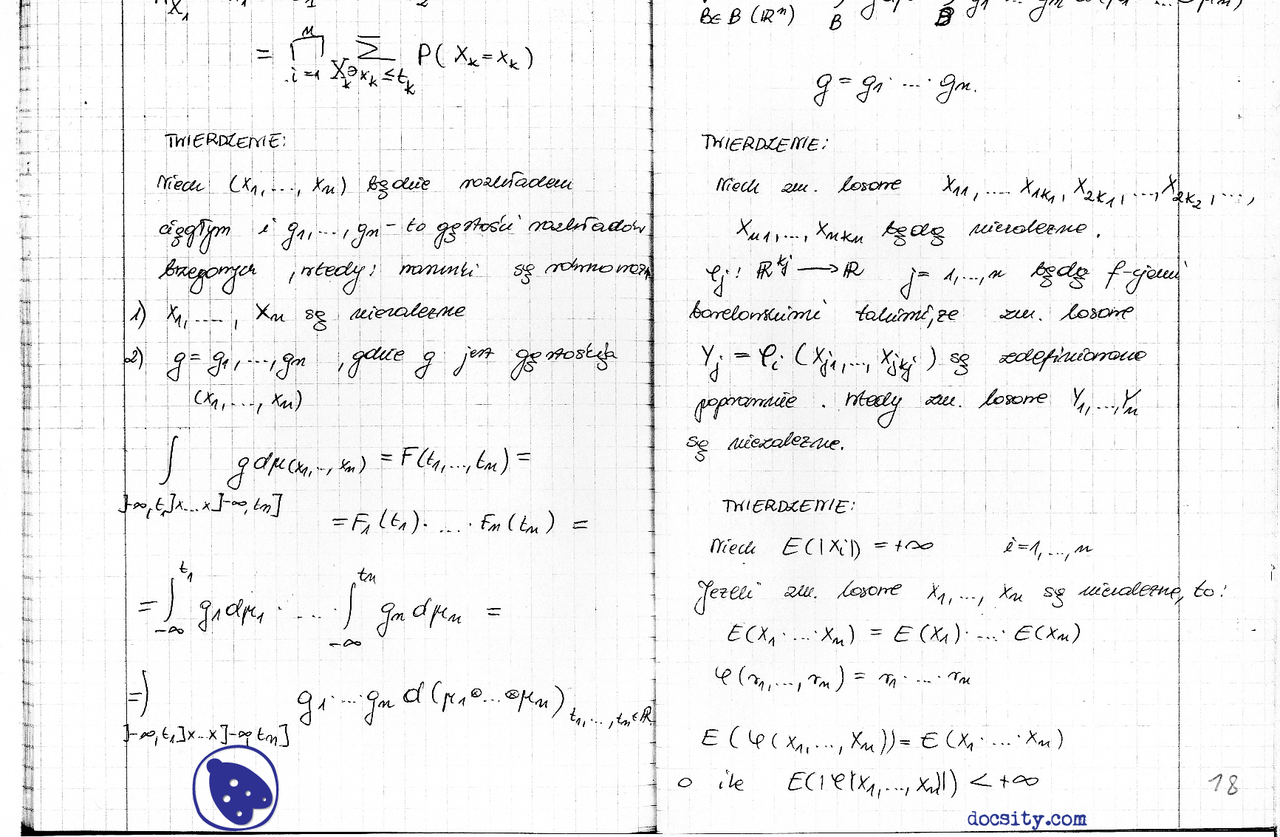 = ∏ i=1 n ∑ X_k∋x_k≤t_k P(X_k=x_k)
TWIERDZENIE:
Niech (X1,...,Xn) będzie rozkładem
ciągłym i g1,...,gn - to gęstości rozkładów
brzegowych, wtedy: warunki są
1) X1,....., Xn są niezależne
2) g=g1,...,gn , gdzie g jest gęstością
(X1,..., Xn)
∫ g dμ(x1,..,xn) = F(t1,...,tn) =
]-∞,t1]x...x]-∞,tn]
= F1(t1)· .... · Fn(tn) =
= ∫_{-∞}^{t1} g1dμ1 · .... ∫_{-∞}^{tn} gn dμn =
=∫ g1 ··· gn d(μ1⊗...⊗μn) t1,...,tn∈R
]-∞,t1]x...x]-∞,tn]
B∈B(Rⁿ)
g = g1· ... · gn.
TWIERDZENIE:
Niech zm. losowe X11, .... X1k1, X2k1, ..., X2k2, ...,
Xn1,..., Xnkn będą niezależne.
φj: R^kj → R j= 1,...,n będą f-cjami
borelowskimi takimi, że zm. losowe
Yj = φi (Xj1,..., Xjkj) są zdefiniowane
poprawnie. Wtedy zm. losowe Y1,...,Yn
są niezależne.
TWIERDZENIE:
Niech E(|Xi|) = +∞ i=1,...,n
Jeżeli zm. losowe X1,..., Xn są niezależne, to:
E(X1· ... ·Xn) = E(X1)· ... · E(Xn)
φ(r1,...,rn) = r1 · ... · rn
E(φ(X1,..., Xn)) = E(X1· ... ·Xn)
o ile E(|φ(X1,..., Xn)|) < +∞
18
docsity.com